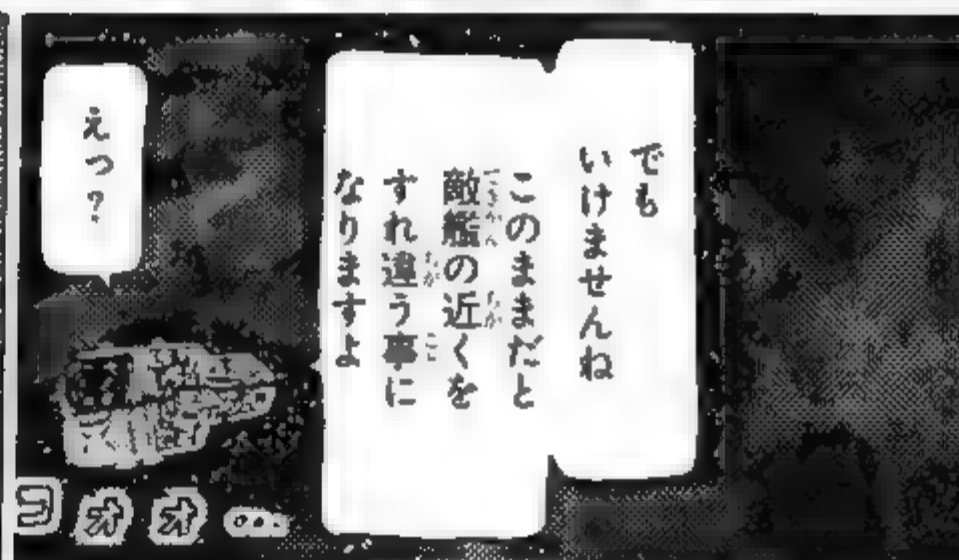 でも
いけませんね
このままだと
敵艦の近くを
すれ違う事に
なりますよ
えっ?
ゴオオ…